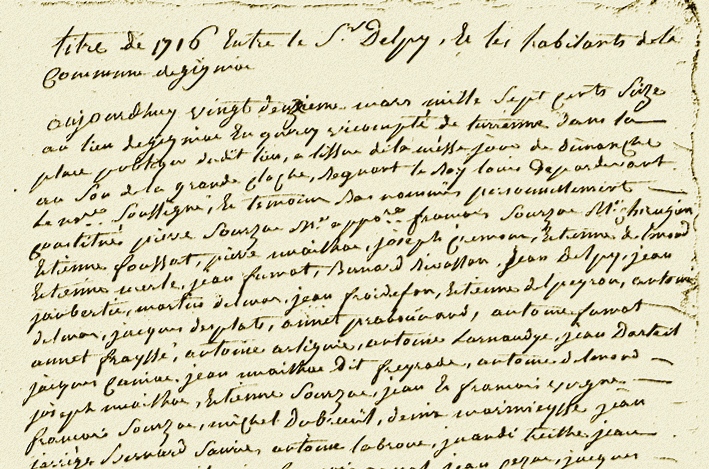 titre de 1716 Entre le Sr Delpy, Et les habitants de la
Commune degignac
aujourdhuy vingt deuzieme mars mille Sept cents Size
au lieu degignac En quercy vicompté de turenne dans la
place publique dudit lieu, a lissue de la messe jour de dimanche
au Son de la grande cloche, Regnant le Roy louis Depardevant
Le nore Soussigné, Et temoins Bas nommés personnellement
Constitués pierre Sourzac Me françois Sourzac Me Chirugien
Etienne foussat, pierre maithae, joseph Etienne delmond
Etienne merle, jean fumat, Bernard jean Delpy, jean
jaubertie, martin delmas, jean froidefon, Etienne delpeyrou, antoine
delmas, jacques desplats, annet antoine fumat
annet fraysse, antoine artigue, antoine Larnaudye, jean
jacques jean maithae Dit antoine delmond
joseph maithae, Etienne Sourzac, jean Et francois
francois Sourzac, michel Dubreüil, denis jean
Bernard antoine labrou, treithe jean
jean jacques